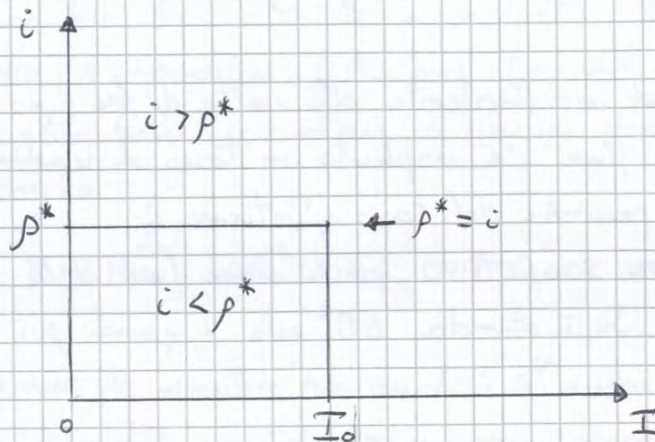 i
i > ρ*
ρ* ← ρ* = i
i < ρ*
0 I₀ I